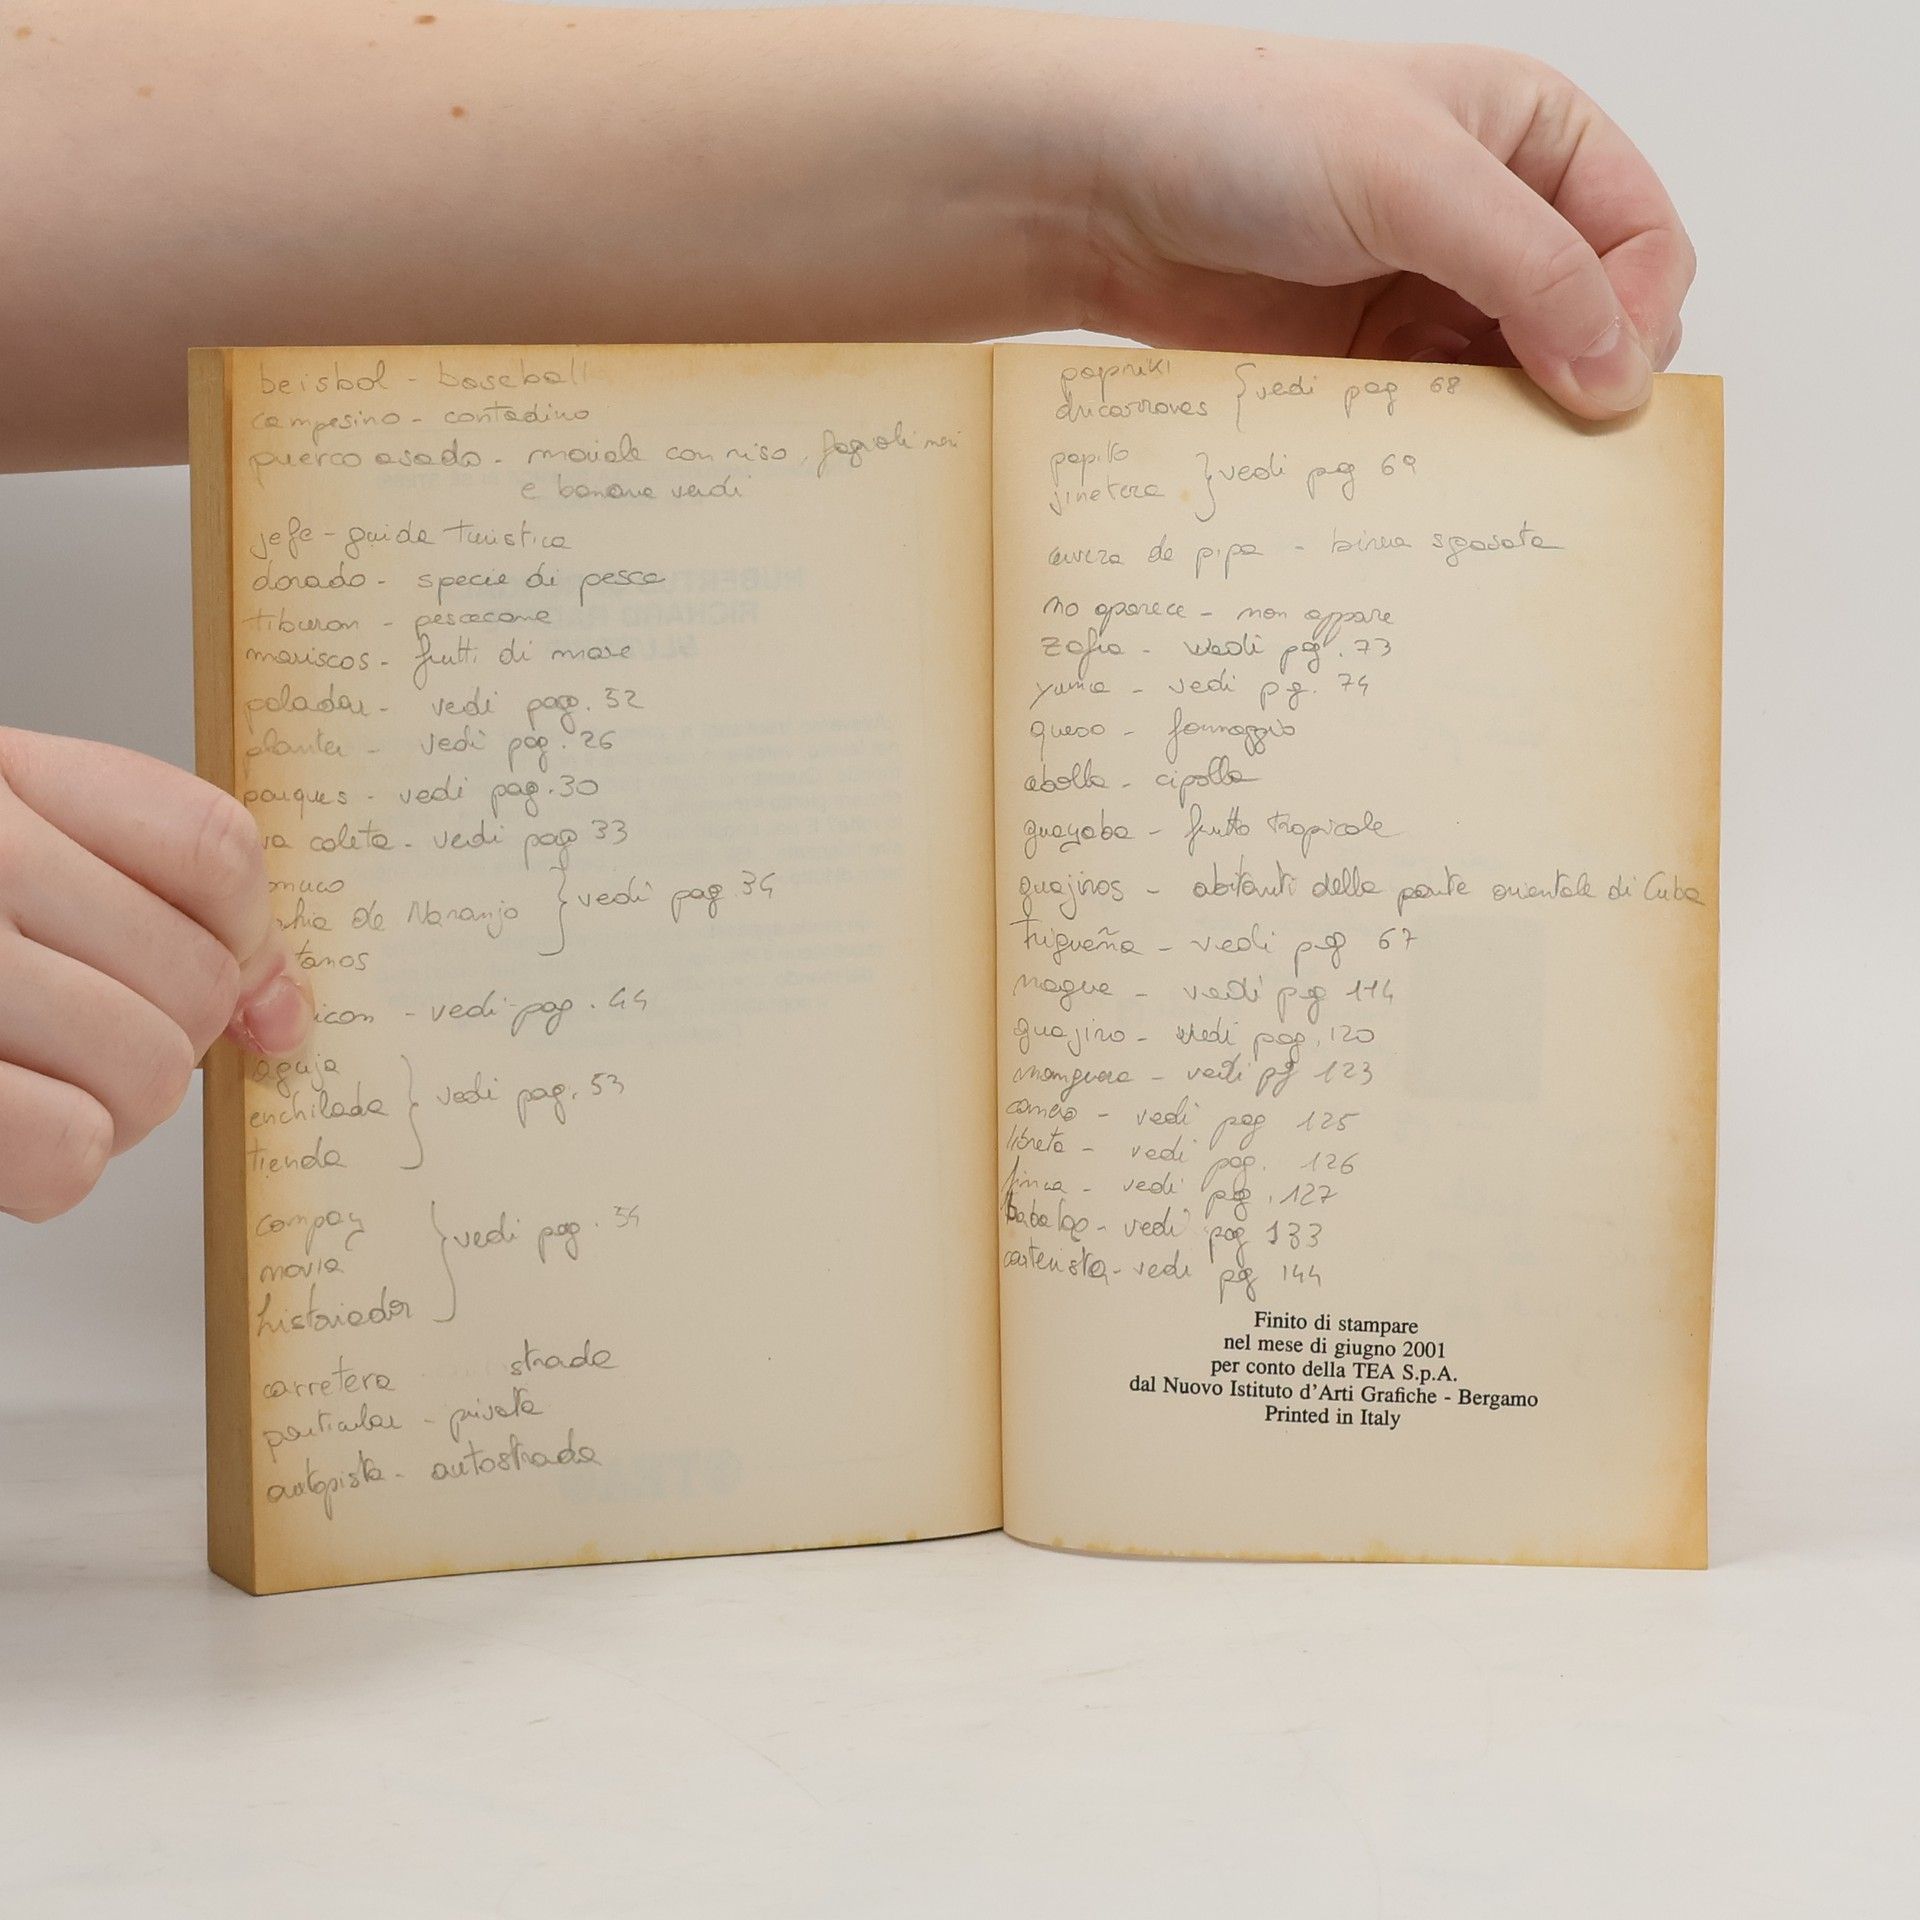 beisbol - baseball
campesino - contadino
puerco asado - maiale con riso, fagioli neri
e banane verdi
jefe - guida turistica
dorado - specie di pesce
tiburon - pescecane
mariscos - frutti di mare
paladar - vedi pag. 52
planter - vedi pag. 26
parques - vedi pag. 30
coleta - vedi pag 33
de Naranjo } vedi pag. 34
tanos
icon - vedi pag. 44
aguja
enchilada } vedi pag. 53
tienda
compay
novia } vedi pag. 54
historiador
carretera strada
particular - privata
autopista - autostrada
papriki
dricarroves { vedi pag 68
papito
jinetera } vedi pag 69
cerveza de pipa - birra sgasata
no aparece - non appare
zafra - vedi pg. 73
yuma - vedi pg. 74
queso - formaggio
cebolla - cipolla
guayaba - frutto tropicale
guajiros - abitanti della parte orientale di Cuba
trigueña - vedi pag 67
nague - vedi pag 114
guajiro - vedi pag. 120
manguera - vedi pg 123
vedi pag 125
libreta - vedi pag. 126
finca - vedi pag. 127
vedi pag 133
carterista - vedi pg 144
Finito di stampare
nel mese di giugno 2001
per conto della TEA S.p.A.
dal Nuovo Istituto d'Arti Grafiche - Bergamo
Printed in Italy